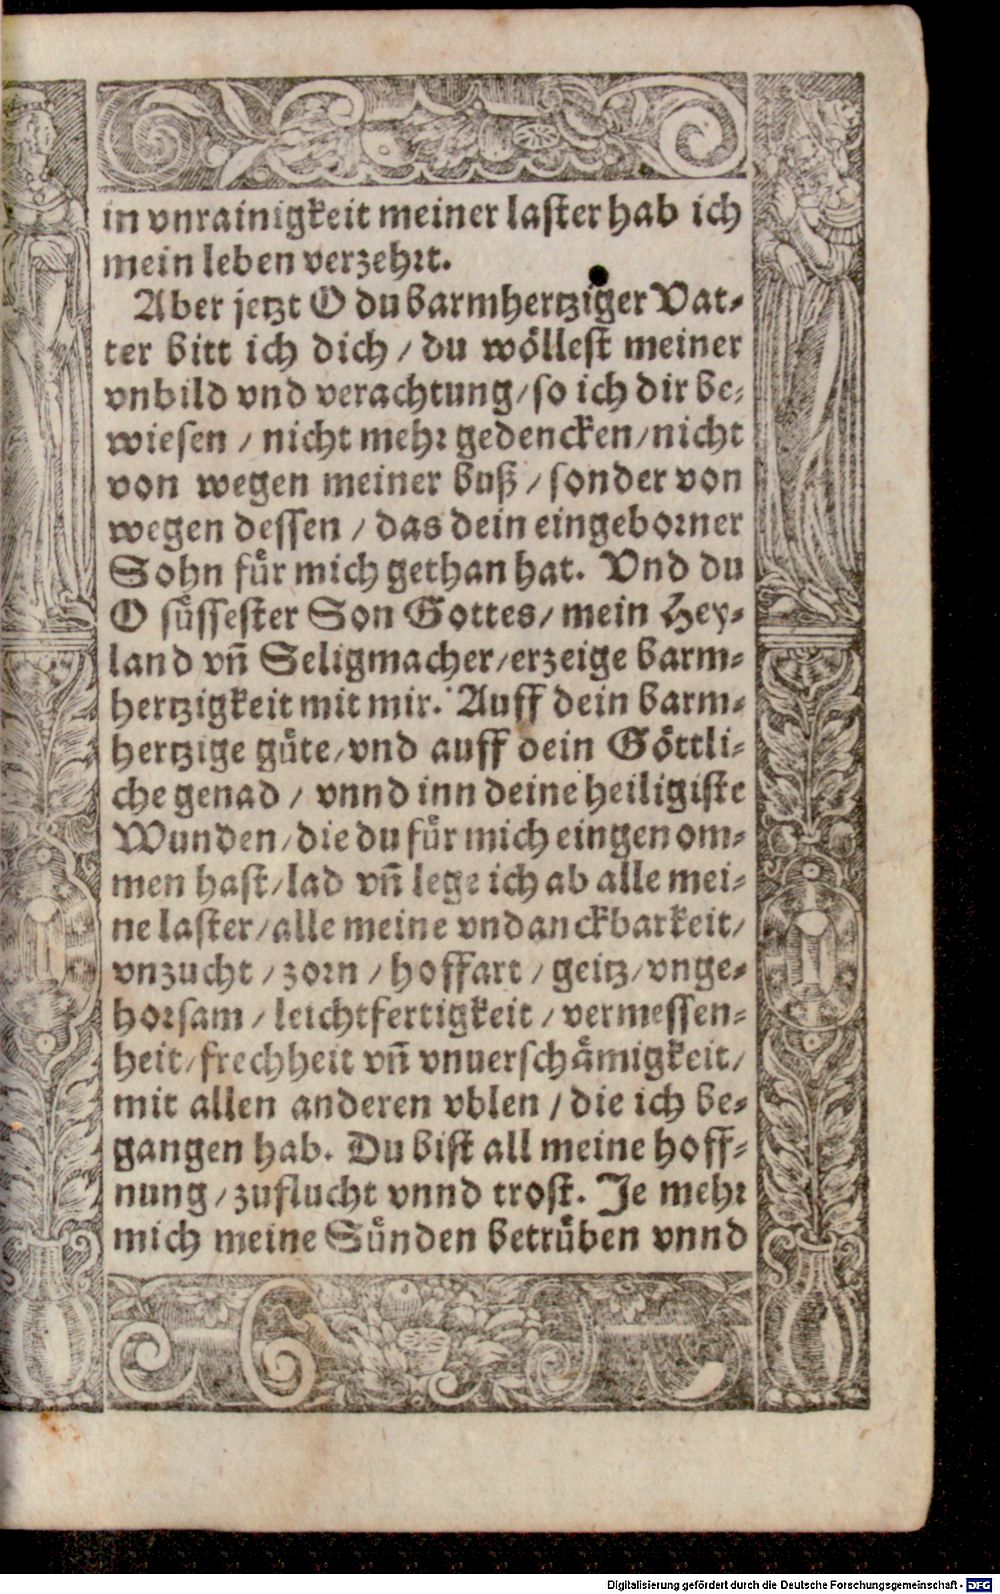 in vnrainigkeit meiner laster hab ich
mein leben verzehrt.
Aber jetzt O du barmhertziger Vat-
ter bitt ich dich / du wöllest meiner
vnbild vnd verachtung / so ich dir be-
wiesen / nicht mehr gedencken / nicht
von wegen meiner buß / sonder von
wegen dessen / das dein eingeborner
Sohn für mich gethan hat. Vnd du
O süssester Son Gottes / mein Hey-
land vñ Seligmacher / erzeige barm-
hertzigkeit mit mir. Auff dein barm-
hertzige güte / vnd auff dein Göttli-
che genad / vnnd inn deine heiligiste
Wunden / die du für mich eingenom-
men hast / lad vñ lege ich ab alle mei-
ne laster / alle meine vndanckbarkeit /
vnzucht / zorn / hoffart / geitz / vnge-
horsam / leichtfertigkeit / vermessen-
heit / frechheit vñ vnuerschämigkeit /
mit allen anderen vblen / die ich be-
gangen hab. Du bist all meine hoff-
nung / zuflucht vnnd trost. Je mehr
mich meine Sünden betrüben vnnd
Digitalisierung gefördert durch die Deutsche Forschungsgemeinschaft - DFG